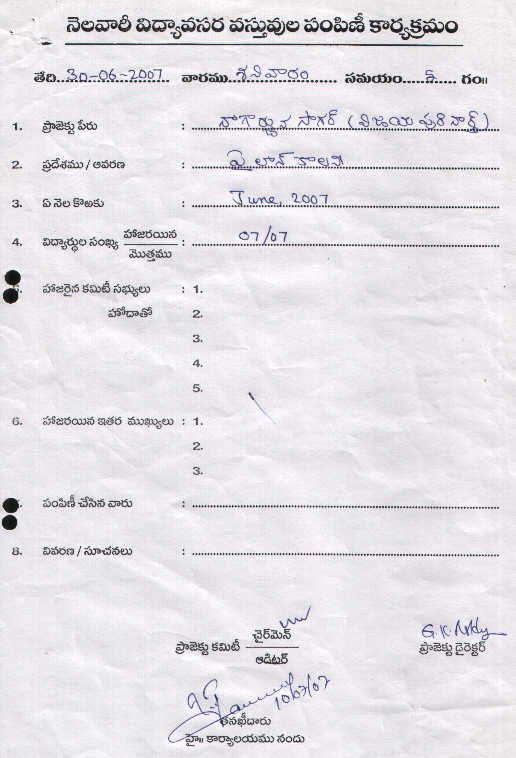 నెలవారీ విద్యావసర వస్తువుల పంపిణీ కార్యక్రమం
తేది 30-06-2007 వారము శనివారం సమయం 5 గం॥
1. ప్రాజెక్టు పేరు : నాగార్జున సాగర్ (విజయపురి నార్త్)
2. ప్రదేశము / ఆవరణ : పైలాన్ కాలని
3. ఏ నెల కొఱకు : June, 2007
4. విద్యార్థుల సంఖ్య హాజరయిన / మొత్తము : 07/07
హాజరైన కమిటీ సభ్యులు : 1.
హోదాతో 2.
3.
4.
5.
6. హాజరయిన ఇతర ముఖ్యులు : 1.
2.
3.
పంపిణీ చేసిన వారు :
8. వివరణ / సూచనలు :
ప్రాజెక్టు కమిటీ చైర్‌మెన్ / ఆడిటర్
G.K. Reddy
ప్రాజెక్టు డైరెక్టర్
10/07/07
తనఖీదారు
హై॥ కార్యాలయము నందు